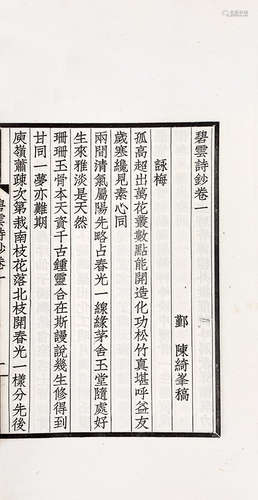 碧雲詩鈔卷一
鄞 陳綺峯稿
詠梅
孤高超出萬花叢數點能開造化功松竹真堪呼益友
歲寒纔見素心同
兩間清氣屬陽先略占春光一線緣茅舍玉堂隨處好
生來雅淡是天然
珊珊玉骨本天資千古鍾靈合在斯謾說幾生修得到
甘同一夢亦難期
庾嶺蕭疎次第栽南枝花落北枝開春光一樣分先後
碧雲詩鈔卷一
一